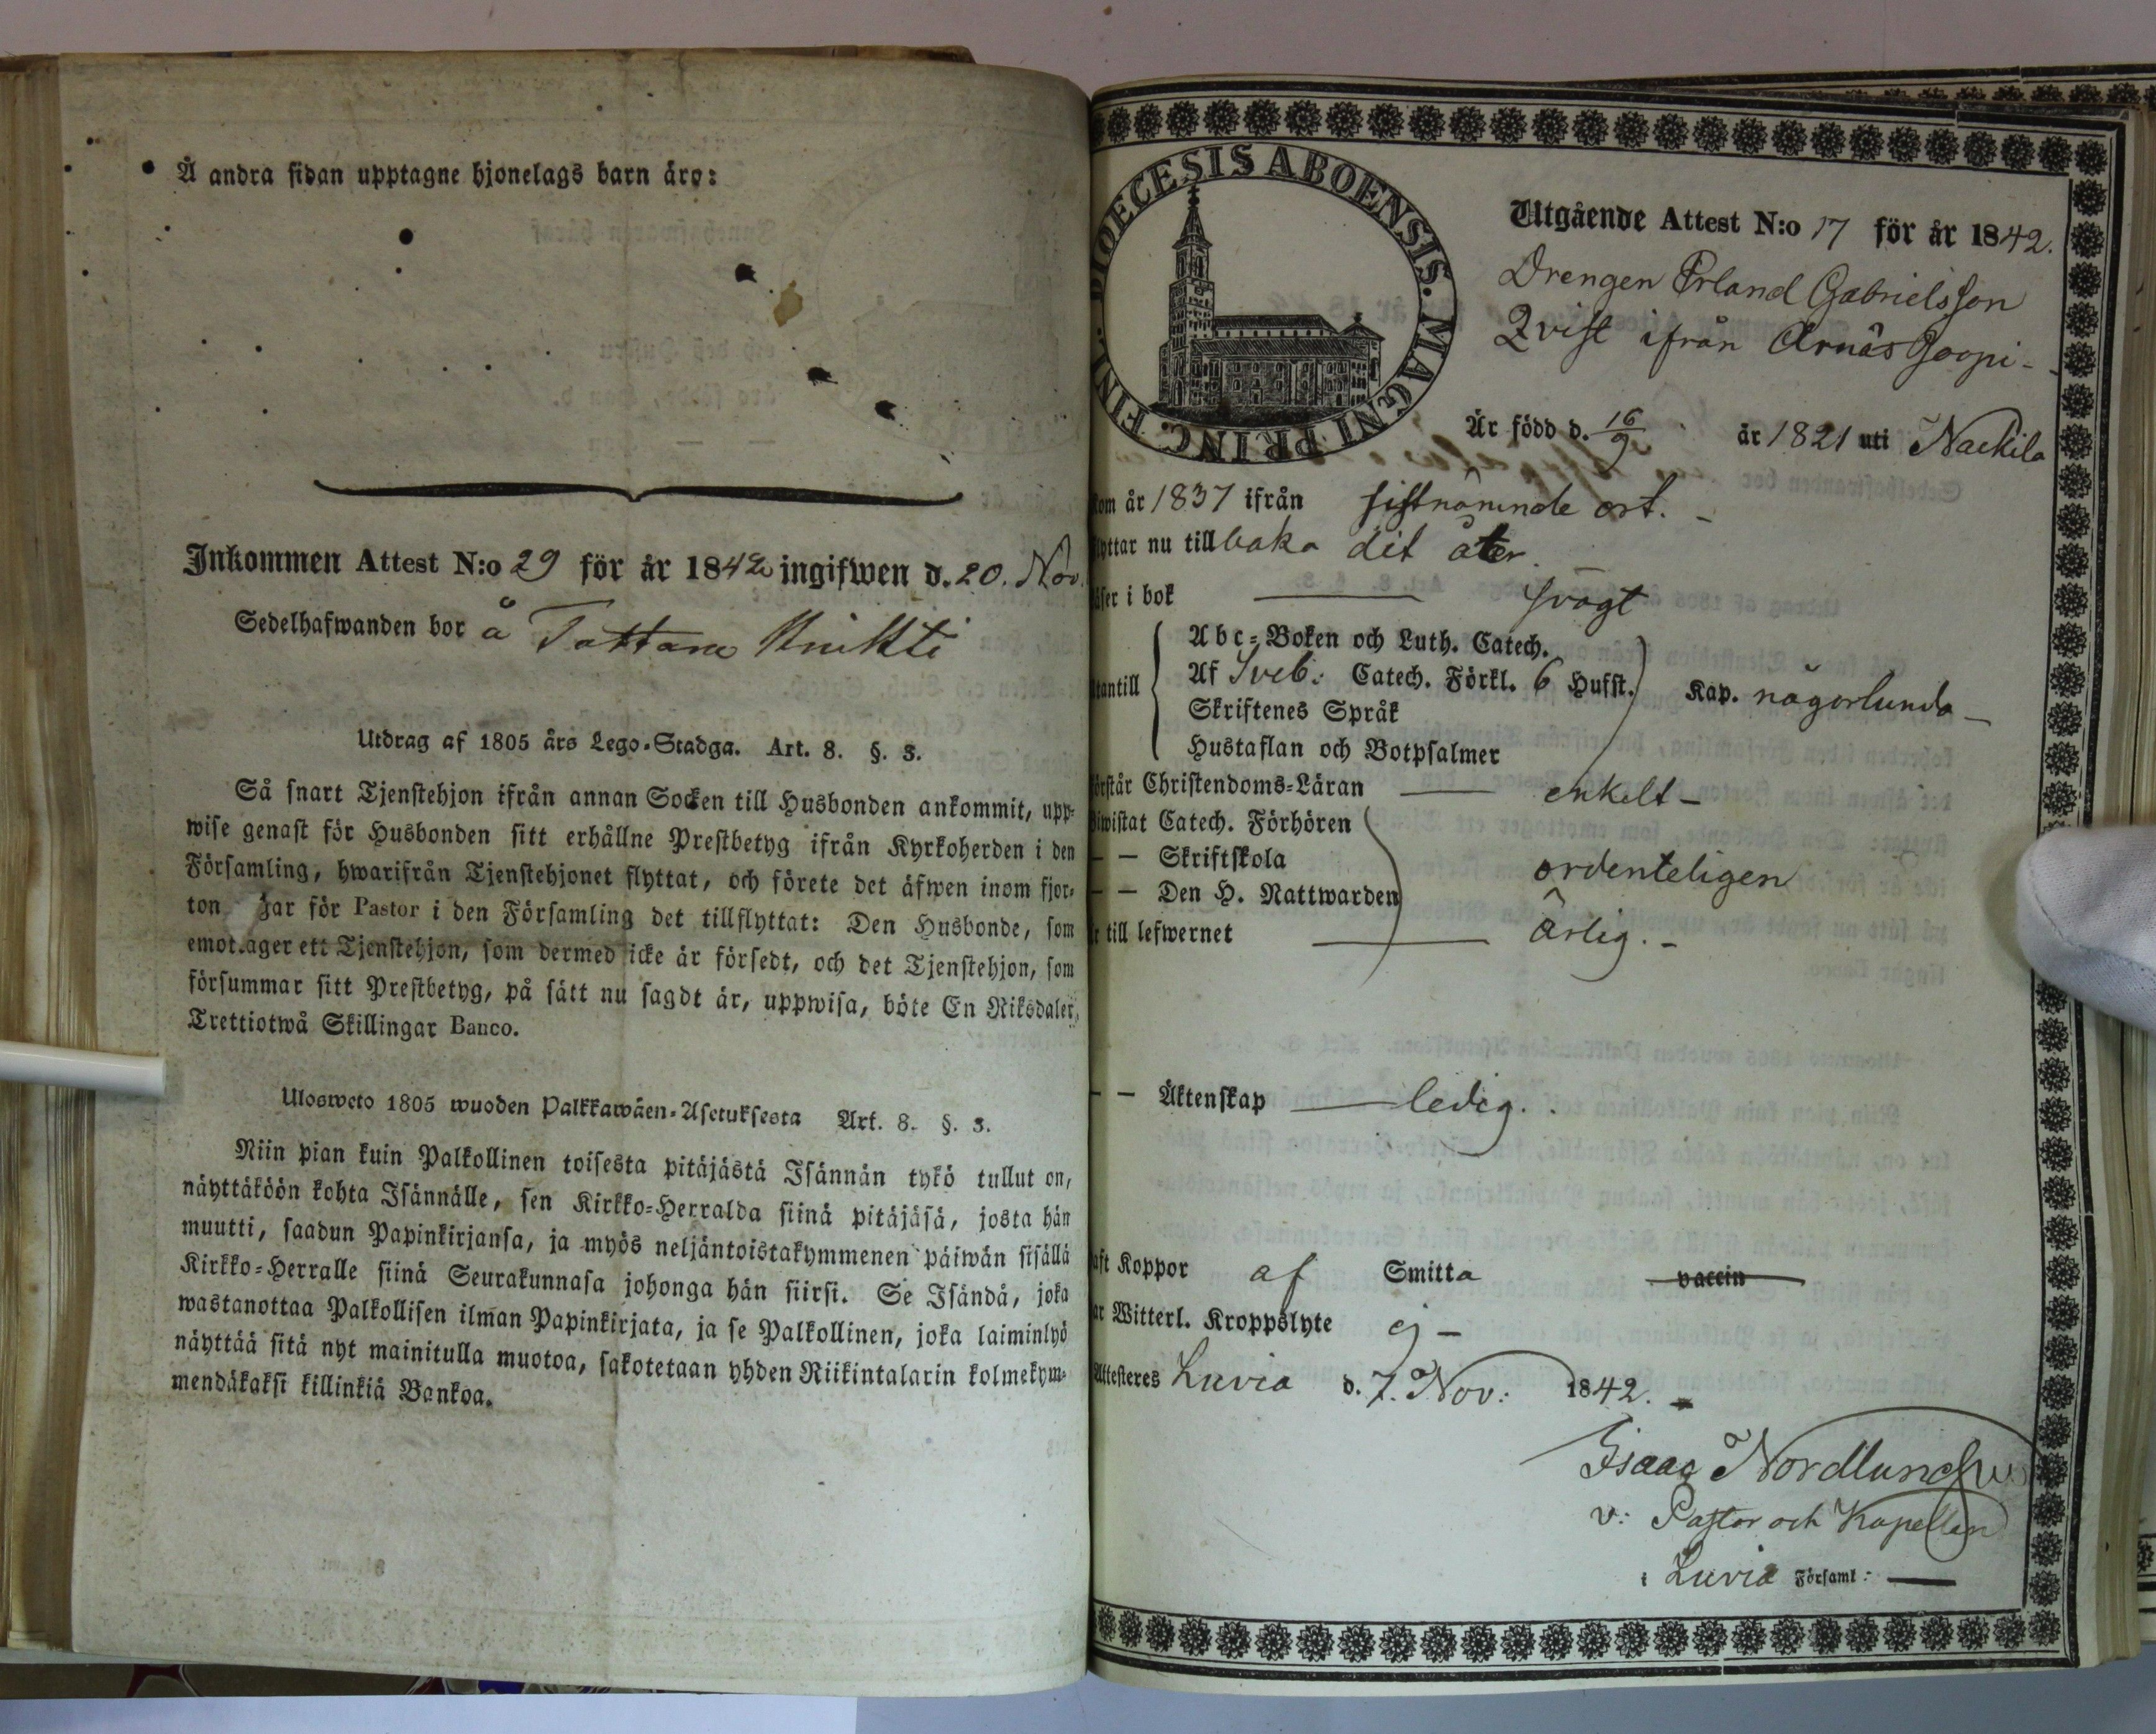 Å andra sidan upptagne hjonelags barn äro:
Inkommen Attest N:o 29 för år 1842 ingifwen d. 20. Nov.
Sedelhafwanden bor å Tattara Knihti
Utdrag af 1805 års Lego-Stadga. Art. 8. §. 3.
Så snart Tjenstehjon ifrån annan Socken till Husbonden ankommit, upp-
wise genast för Husbonden sitt erhållne Prestbetyg ifrån Kyrkoherden i den
Församling, hwarifrån Tjenstehjonet flyttat, och förete det äfwen inom fjor-
ton dar för Pastor i den Församling det tillflyttat: Den Husbonde, som
emottager ett Tjenstehjon, som dermed icke är försedt, och det Tjenstehjon, som
försummar sitt Prestbetyg, på sätt nu sagdt är, uppwisa, böte En Riksdaler,
Trettiotwå Skillingar Banco.
Ulosweto 1805 wuoden Palkkawäen-Asetuksesta Art. 8. §. 3.
Niin pian kuin Palkollinen toisesta pitäjästä Isännän tykö tullut on,
näyttäköön kohta Isännälle, sen Kirkko-Herralda siinä pitäjäsä, josta hän
muutti, saadun Papinkirjansa, ja myös neljäntoistakymmenen päiwän sisällä
Kirkko-Herralle siinä Seurakunnasa johonga hän siirsi. Se Isändä, joka
wastanottaa Palkollisen ilman Papinkirjata, ja se Palkollinen, joka laiminlyö
näyttää sitä nyt mainitulla muotoa, sakotetaan yhden Riikintalarin kolmekym-
mendäkaksi killinkiä Bankoa.
DIOECESIS ABOENSIS. MAGNI PRINC. FINL.
Utgående Attest N:o 17 för år 1842.
Drengen Erland Gabrielsson
Qvist ifrån Arnäs Goopi-
Är född d. 16/9 år 1821 uti Nackila
kom år 1837 ifrån sistnämnde ort. -
flyttar nu tillbaka dit åter.
läser i bok svagt
Abc-Boken och Luth. Catech.
utantill Af Sveb: Catech. Förkl. 6 Hufst. Kap. någorlunda -
Skriftenes Språk
Hustaflan och Botpsalmer
förstår Christendoms-Läran enkelt -
biwistat Catech. Förhören
— — Skriftskola ordenteligen
— — Den H. Nattwarden
är till lefwernet ärlig. -
— — Äktenskap ledig.
haft Koppor af Smitta vaccin
har Witterl. Kroppslyte ej -
Attesteras Luvia d. 7. Nov: 1842.
Isaac Nordlund
v: Pastor och Kapellan
i Luvia Församl: